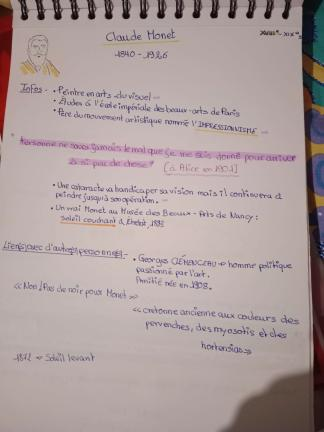 Claude Monet
XVIIIe-XIXe s
1840-1926
Infos:
• Peintre en arts du visuel
• Etudes à l'école impériale des beaux-arts de Paris
• Père du mouvement artistique nommé l'IMPRESSIONNISME
"Personne ne saura jamais le mal que je me suis donné pour arriver
à si peu de chose" (à Alice en 1901)
• Une cataracte va handicaper sa vision mais il continuera à
peindre jusqu'à son opération.
• Un vrai Monet au Musée des Beaux-Arts de Nancy:
soleil couchant à Etretat, 1883
Lien(s) avec d'autres personnes:
• Georges CLÉMENCEAU → homme politique
passionné par l'art.
Amitié née en 1908.
<<Non! Pas de noir pour Monet>>
<<cretonne ancienne aux couleurs des
pervenches, des myosotis et des
hortensias>>
1872 → Soleil levant